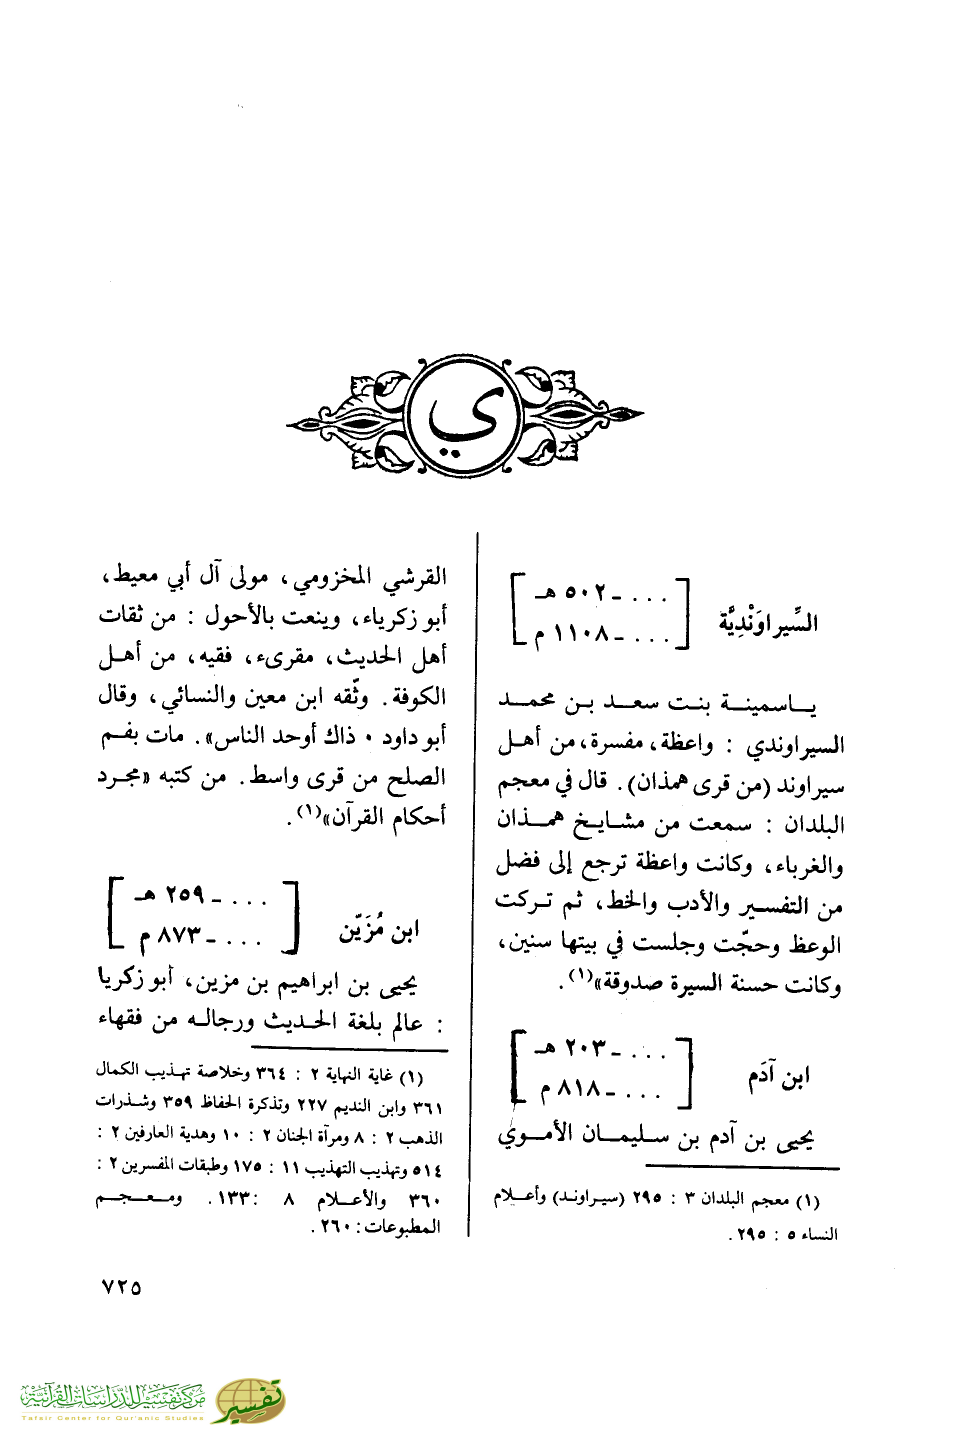 ي
السِّيراوَنْدِيَّة
[ . . . ـ ٥٠٢ هـ
. . . ـ ١١٠٨ م ]
يـاسمينـة بنـت سعـد بـن محمـد
السيراوندي : واعظة، مفسرة، من أهل
سيراوند (من قرى همذان). قال في معجم
البلدان : سمعت من مشايـخ همـذان
والغرباء، وكانت واعظة ترجع إلى فضل
من التفسـير والأدب والخط، ثم تـركت
الوعظ وحجّت وجلست في بيتها سنين،
وكانت حسنة السيرة صدوقة»(١).
ابن آدَم
[ . . . ـ ٢٠٣ هـ
. . . ـ ٨١٨ م ]
يحيى بن آدم بن سـليمـان الأمـوي
(١) معجم البلدان ٣ : ٢٩٥ (سيـراونـد) وأعـلام
النساء ٥ : ٢٩٥.
القرشي المخزومي، مولى آل أبي معيط،
أبو زكرياء، وينعت بالأحول : من ثقات
أهل الحديث، مقرىء، فقيه، من أهـل
الكوفة. وثّقه ابن معين والنسائي، وقال
أبو داود ٠ ذاك أوحد الناس». مات بفـم
الصلح من قرى واسط. من كتبه «مجرد
أحكام القرآن»(١).
ابن مُزَيّن
[ . . . ـ ٢٥٩ هـ
. . . ـ ٨٧٣ م ]
يحيى بن ابراهيم بن مزين، أبو زكريا
: عالم بلغة الحـديث ورجالـه من فقهاء
(١) غاية النهاية ٢ : ٣٦٤ وخلاصة تهـذيب الكمال
٣٦١ وابن النديم ٢٢٧ وتذكرة الحفاظ ٣٥٩ وشـذرات
الذهب ٢ : ٨ ومرآة الجنان ٢ : ١٠ وهدية العارفين ٢ :
٥١٤ وتهذيب التهذيب ١١ : ١٧٥ وطبقات المفسرين ٢ :
٣٦٠ والأعـلام ٨ :١٣٣. ومـعـجـم
المطبوعات : ٢٦٠.
٧٢٥
مركز تفسير للدراسات القرآنية
Tafsir Center for Qur'anic Studies
تفسير